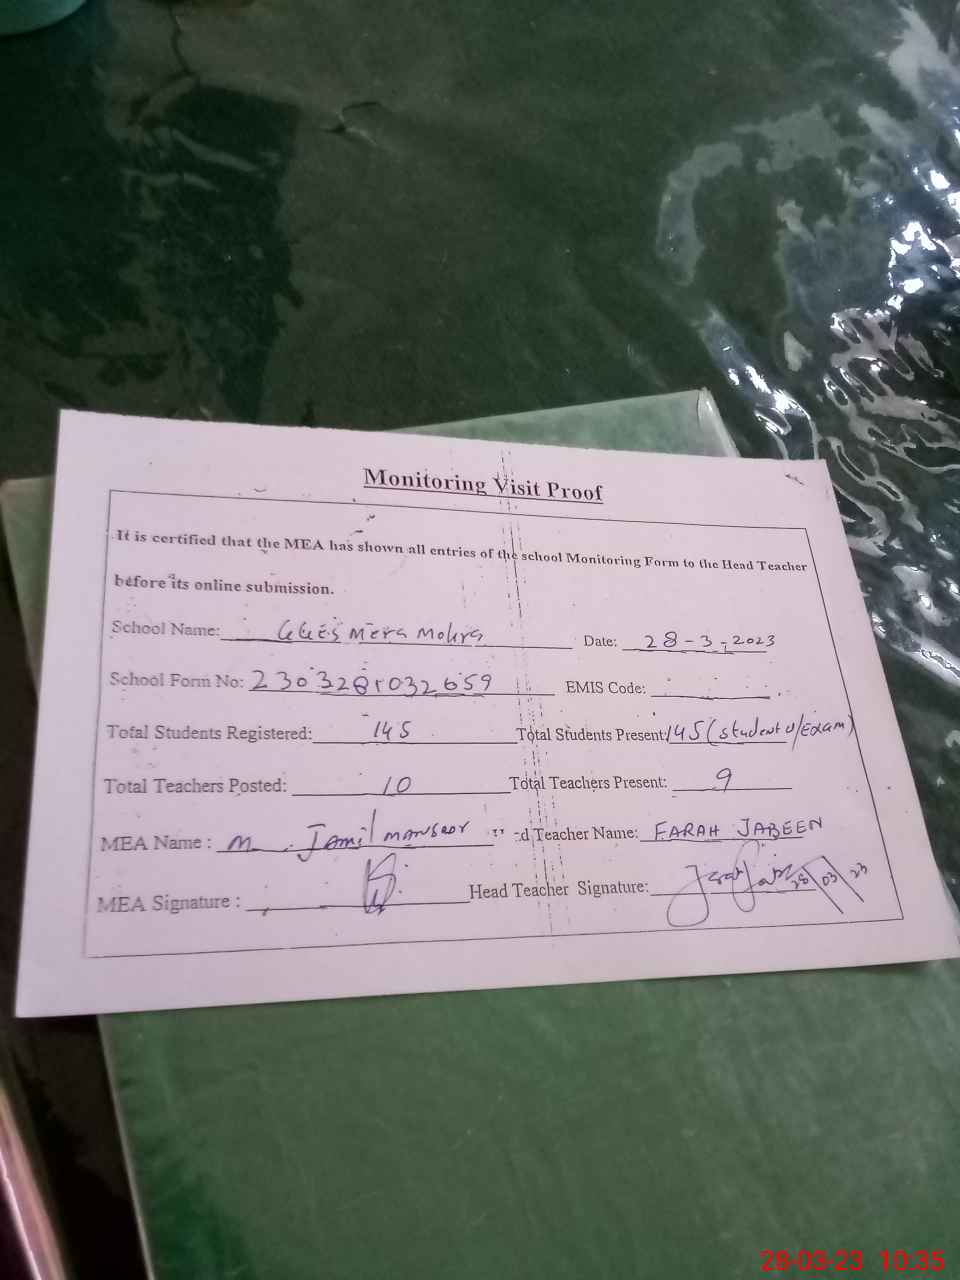 Monitoring Visit Proof
It is certified that the MEA has shown all entries of the school Monitoring Form to the Head Teacher
before its online submission.
School Name: GGES Mera Mohra Date: 28-3-2023
School Form No: 2303281032659 EMIS Code:
Total Students Registered: 145 Total Students Present: 145 (student U/Exam)
Total Teachers Posted: 10 Total Teachers Present: 9
MEA Name : M. Jamil Mansoor d Teacher Name: FARAH JABEEN
MEA Signature : Head Teacher Signature: 28/03/23
28-03-23 10:35